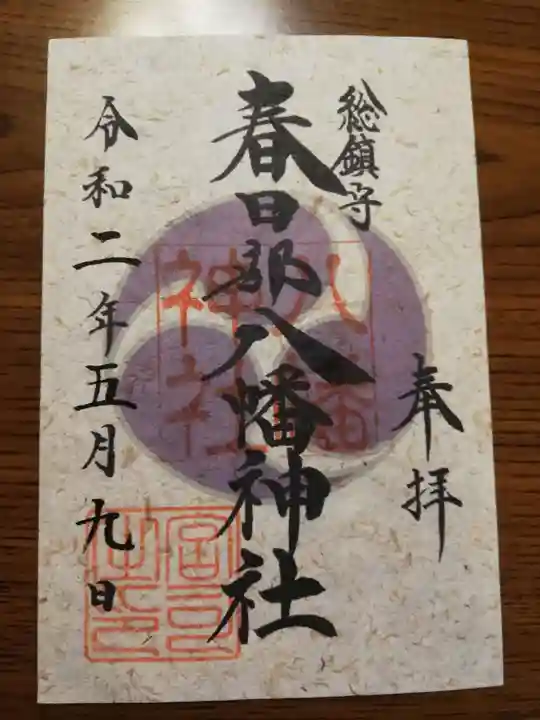 総鎮守
奉拝
春日部八幡神社
八幡
神社
令和二年五月九日
宮司
之印